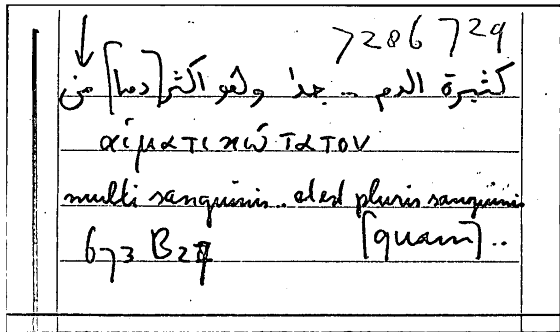 7286 729
كثيرة الدم .. جدا وهو اكثر [دما] من
αἱματικώτατον
multi sanguinis .. et est pluris sanguinis
[quam] ..
673 B27